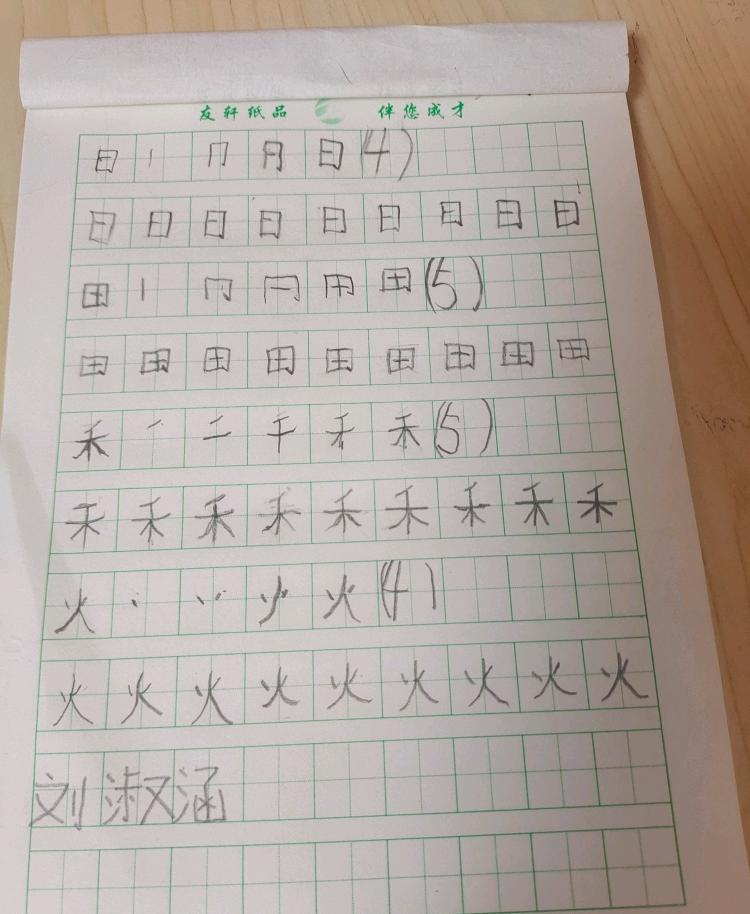 友轩纸品 伴您成才
日 丨 冂 月 日 (4)
日 日 日 日 日 日 日 日 日
田 丨 冂 冂 用 田 (5)
田 田 田 田 田 田 田 田 田
禾 一 二 千 禾 禾 (5)
禾 禾 禾 禾 禾 禾 禾 禾 禾
火 丶 丷 火 (4)
火 火 火 火 火 火 火 火 火
刘淑涵